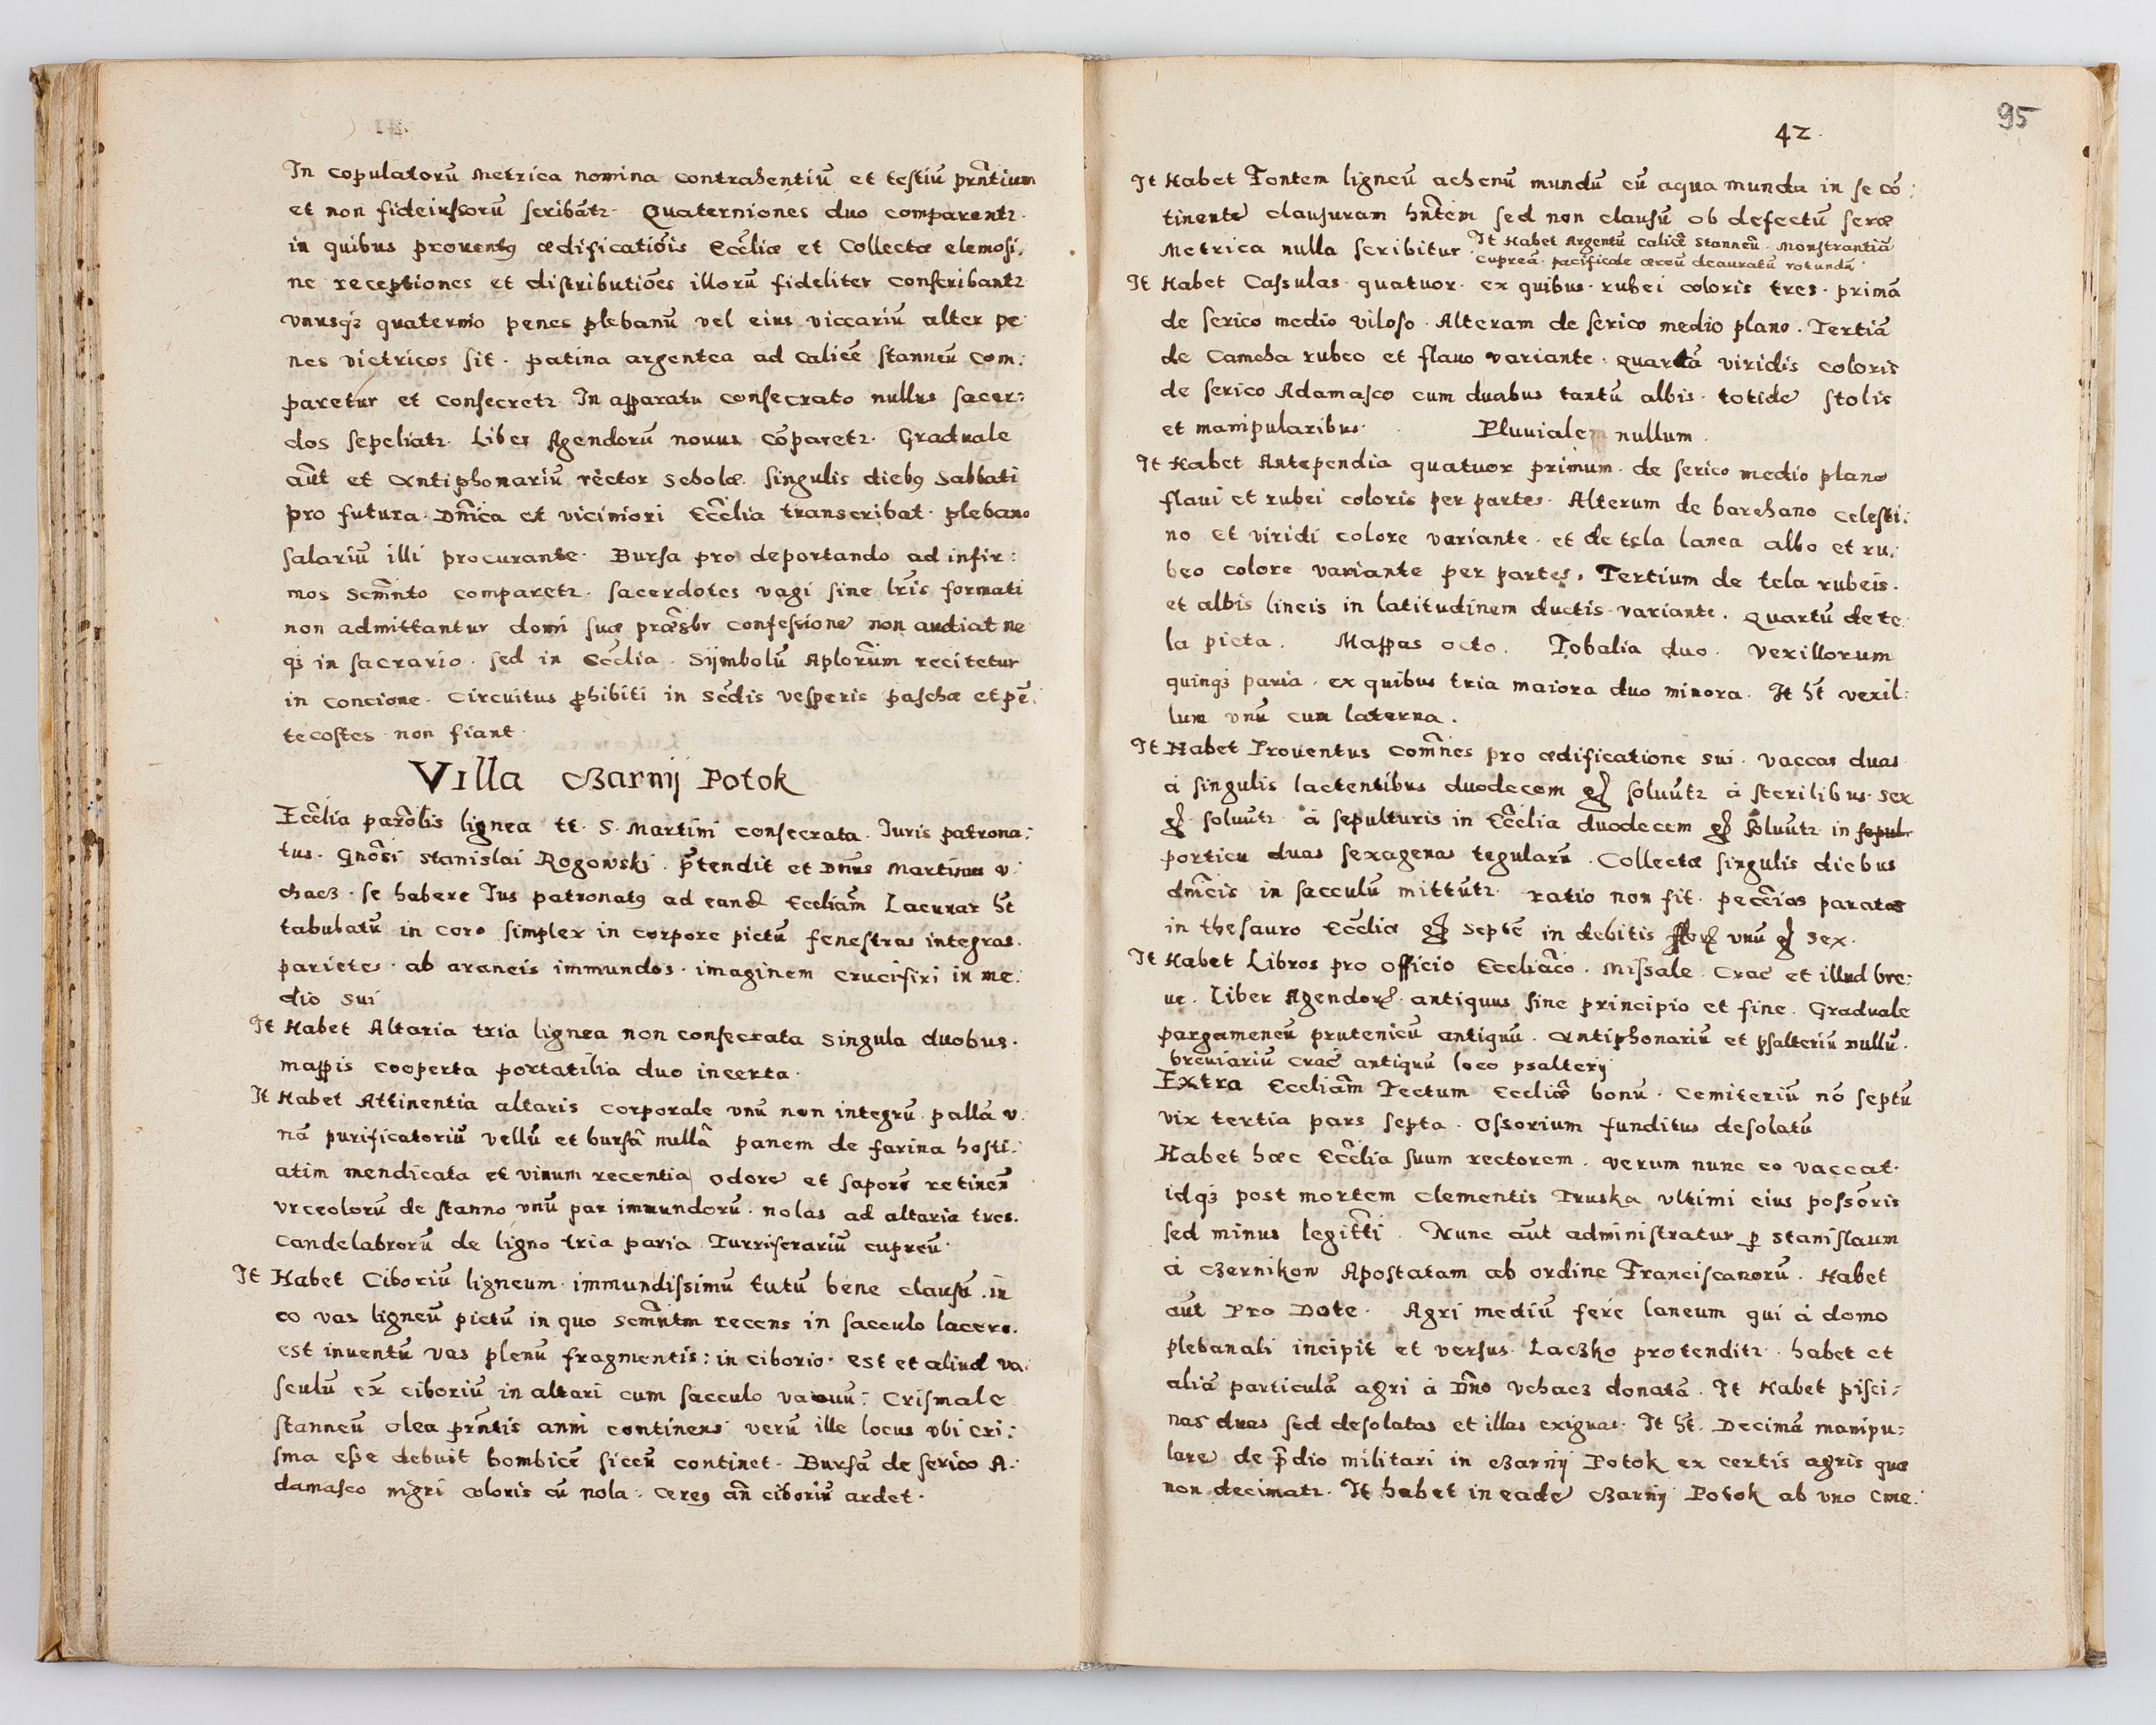 In copulatorũ Metrica nomina contrahentiũ et testiũ prñtium
et non fideiussorũ scribãtz. Quaterniones duo comparentz.
in quibus prouentꝯ ædificatiõis Ecc̃liæ et Collectæ elemosi:
ne receptiones et distributiões illorũ fideliter conscribantz
vnusqꝫ quaternio penes plebanũ vel eius viccariũ alter pe
nes vietricos sit. patina argentea ad calicẽ stanneũ com:
paretur et consecretz. In apparatu consecrato nullus sacer:
dos sepeliatz. Liber Agendorũ nouus cõparetz. Graduale
aũt et Antiphonariũ rector scholæ. singulis diebꝯ Sabbati
pro futura. Dñica ex viciniori Ecc̃lia transcribat. plebano
salariũ illi procurante. Bursa pro deportando ad infir:
mos Scm̃nto comparetz. sacerdotes vagi sine lr̃is formati
non admittantur domi suæ præsbr confessione non audiat ne
qꝫ in sacrario. sed in Ecc̃lia. Sÿmbolũ Aplorũm recitetur
in concione. Circuitus ꝓhibiti in sc̃dis vesperis paschæ et pẽ:
tecostes non fiant.
Villa Czarnij Potok
Ecc̃lia parõlis lignea tt. S. Martini consecrata. Iuris patrona:
tus. Gnõsi Stanislai Rogowski. p̃tendit et Dñus Martinus v:
chacz. se habere Ius patronatꝯ ad eand Eccliam̃ Lacunar ht̃
tabulatũ in coro simplex in corpore pictũ fenestras integras.
parietes. ab araneis immundos. imaginem crucifixi in me:
dio sui
It Habet Altaria tria lignea non consecrata singula duobus.
mappis cooperta portatilia duo incerta.
It Habet Attinentia altaris corporale vnũ non integrũ pallã v:
nã purificatoriũ vellũ et bursã nullã panem de farina hosti:
atim mendicata et vinum recentia odore et saporẽ retinen̄
vrceolorũ de stanno vnũ par immundorũ. nolas ad altaria tres.
Candelabrorũ de ligno tria paria Turriferariũ cupreũ.
It Habet Ciboriũ ligneum immundissimũ tutũ bene clausũ. in
eo vas ligneũ pictũ in quo Scm̃ntm recens in sacculo lacero.
est inuentũ vas plenũ fragmentis: in ciborio. Est et aliud va:
sculũ ex̃ ciboriũ in altari cum sacculo vacuũ: Crismale
stanneũ olea prñtis anni continens verũ ille locus vbi cri:
sma esse debuit bombicẽ siccũ continet. Bursã de serico A:
damasco nigri coloris cũ nola. cereꝯ añ ciboriũ ardet.
95
42.
It Habet Fontem ligneũ aehenũ mundũ cũ aqua munda in se cõ:
tinente clausuram hñtem sed non clausũ ob defectũ seræ
Metrica nulla scribitur. It Habet Argentũ calicẽ Stanneũ. Monstrantiã
cupreã. pacificale æreũ deauratũ rotundũ.
It Habet Cassulas. quatuor. ex quibus. rubei coloris tres. primã
de serico medio viloso. Alteram de serico medio plano. Tertiã
de Camcha rubeo et flauo variante. quartã viridis coloris
de serico Adamasco cum duabus tantũ albis. totide stolis
et manipularibus. Pluuiale nullum.
It Habet Antependia quatuor primum. de serico medio plano
flaui et rubei coloris per partes. Alterum de barchano celesti:
no et viridi colore variante. et de tela lanea albo et ru:
beo colore variante per partes. Tertium de tela rubeis.
et albis lineis in latitudinem ductis variante. Quartũ de te:
la picta. Mappas octo. Tobalia duo. Vexillorum
quinqꝫ paria. ex quibus tria maiora duo minora. It ht̃ vexil:
lum vnũ cum laterna.
It Habet Prouentus com̃nes pro ædificatione sui. vaccas duas
à singulis lactentibus duodecem gͬ soluũtz à sterilibus. Sex
gͬ. soluũtz. à sepulturis in Ecc̃lia duodecem gͬ soluũtz in sepul-
porticu duas sexagenas tegularũ. Collectæ singulis diebus
dm̃cis in sacculũ mittũtz. ratio non fit. pecc̃ias paratas
in thesauro Ecc̃lia gͬ septẽ in debitis vnũ gͬ sex.
It Habet Libros pro officio Eccliãco. Missale. Crac̃ et illud bre:
ue. Liber Agendorꝝ. antiquus sine principio et fine. Graduale
pargameneũ prutenicũ antiquũ. Antiphonariũ et psalteriũ nullũ.
breuiariũ crac̃ antiquũ loco psalterij
Extra Eccliam̃ Tectum Ecclĩæ bonũ. Cemiteriũ nõ septũ
vix tertia pars septa. Ossorium funditus desolatũ
Habet hæc Ecc̃lia suum rectorem. verum nunc eo vaccat.
idqꝫ post mortem Clementis Truska vltimi eius possõris
sed minus legittĩ. Nunc aũt administratur ꝑ Stanislaum
à Czernikow Apostatam ab ordine Franciscanorũ. Habet
aũt Pro Dote. Agri mediũ ferè laneum qui à domo
plebanali incipit et versus Laczko protenditz. habet et
aliã particulã agri à Dño Vchacz donatã. It Habet pisci:
nas duas sed desolatas et illas exiguas. It ht̃. Decimã manipu:
lare de p̃dio militari in Czarnij Potok ex certis agris quæ
non decimatz. It habet in eade Czarnij Potok ab vno Cme: